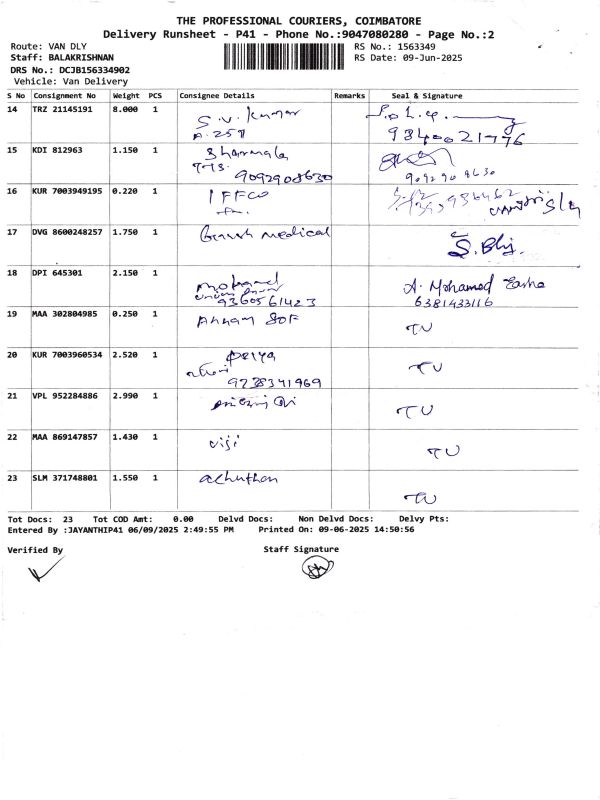 THE PROFESSIONAL COURIERS, COIMBATORE
Delivery Runsheet - P41 - Phone No.:9047080280 - Page No.:2
Route: VAN DLY
Staff: BALAKRISHNAN
DRS No.: DCJB156334902
Vehicle: Van Delivery
RS No.: 1563349
RS Date: 09-Jun-2025
S No Consignment No Weight PCS Consignee Details Remarks Seal & Signature
14 TRZ 21145191 8.000 1 S.V. Kumar
A.257
15 KDI 812963 1.150 1 Sharmala
9092908630
16 KUR 7003949195 0.220 1 IFFCO
17 DVG 8600248257 1.750 1 medical
18 DPI 645301 2.150 1 A. Mohamed
9360561423 6381433116
19 MAA 302804985 0.250 1 TU
20 KUR 7003960534 2.520 1 priya TU
21 VPL 952284886 2.990 1 TU
22 MAA 869147857 1.430 1 viji TU
23 SLM 371748801 1.550 1 achuthan TU
Tot Docs: 23 Tot COD Amt: 0.00 Delvd Docs: Non Delvd Docs: Delvy Pts:
Entered By :JAYANTHIP41 06/09/2025 2:49:55 PM Printed On: 09-06-2025 14:50:56
Verified By Staff Signature